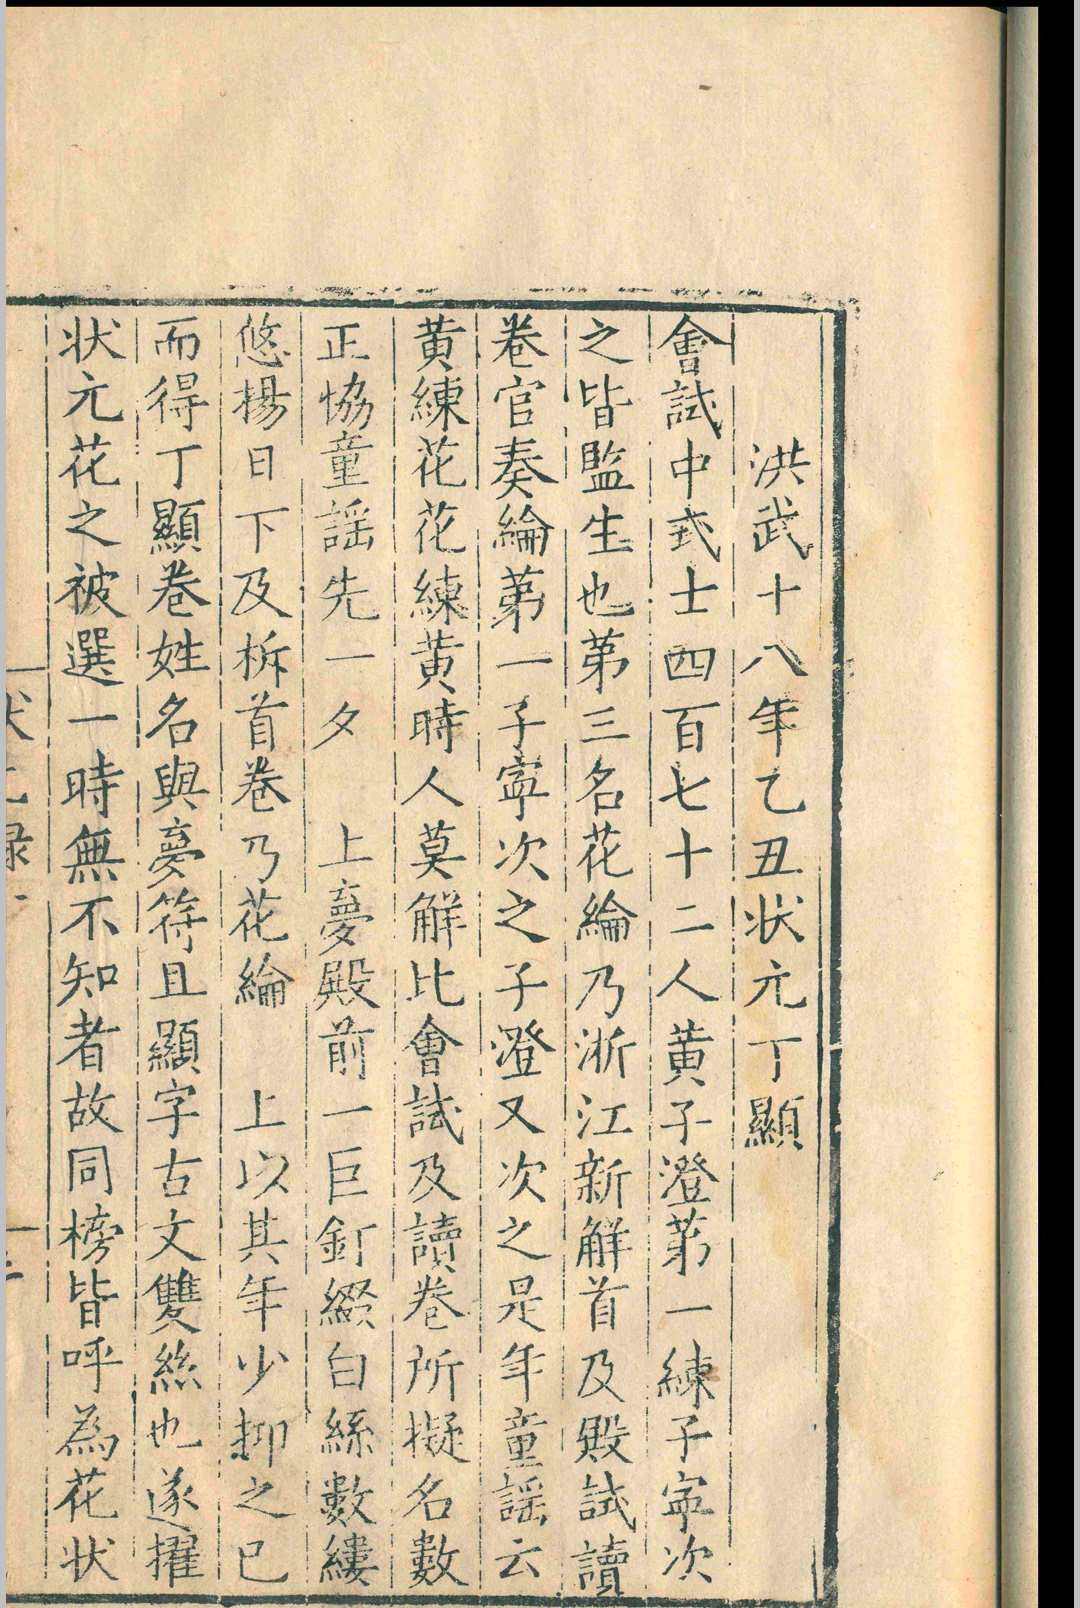 洪武十八年乙丑狀元丁顯
會試中式士四百七十二人黄子澄第一練子寧次
之皆監生也第三名花綸乃浙江新觧首及殿試讀
卷官奏綸第一子寧次之子澄又次之是年童謡云
黄練花花練黄時人莫觧比會試及讀卷所擬名數
正協童謡先一夕　上夢殿前一巨釘綴白絲數縷
悠揚日下及柝首卷乃花綸　上以其年少抑之已
而得丁顯卷姓名與夢符且顯字古文雙絲也遂擢
狀元花之被選一時無不知者故同榜皆呼為花狀